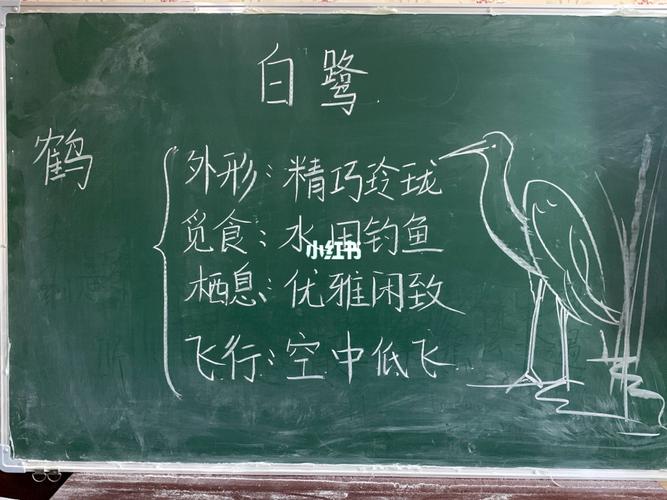 白鹭
鹤
外形：精巧玲珑
觅食：水田钓鱼
小红书
栖息：优雅闲致
飞行：空中低飞